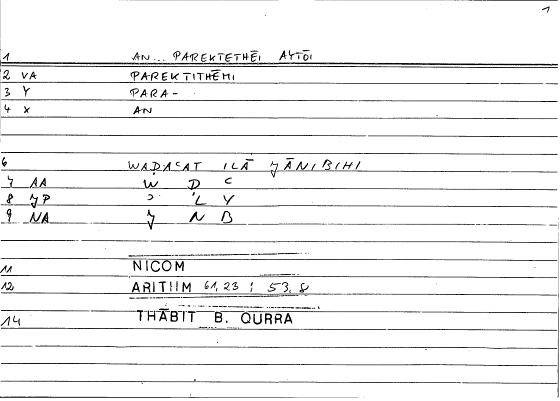 1
1 AN... PAREKTETHĒI AYTŌI
2 VA PAREKTITHĒMI
3 Y PARA-
4 X AN
6 WAḌAʿAT ILĀ ǦĀNIBIHI
7 AA W Ḍ ʿ
8 ǦP ʾ L Y
9 NA Ǧ N B
11 NICOM
12 ARITIIM 61,23 ; 53,8
14 THĀBIT B. QURRA